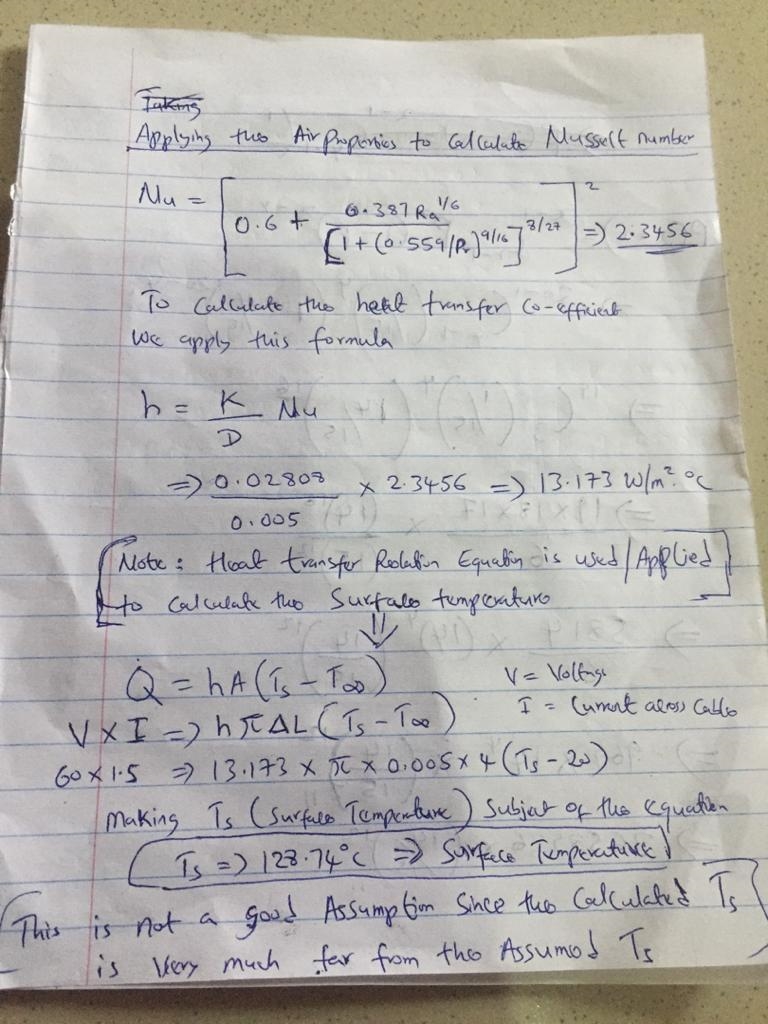 Taking
Applying the Air Properties to Calculate Nusselt number
Nu = [0.6 + 0.387 Ra^1/6 / [1 + (0.559/Pr)^9/16]^8/27]^2 => 2.3456
To Calculate the heat transfer Co-efficient
We apply this formula
h = K/D Nu
=> 0.02808/0.005 × 2.3456 => 13.173 W/m².°C
Note: Heat transfer Relation Equation is used/Applied
to Calculate the Surface temperature
⇓
Q̇ = hA(Ts - T∞)
V = Voltage
V × I => hπΔL(Ts - T∞)
I = Current across Cable
60 × 1.5 => 13.173 × π × 0.005 × 4 (Ts - 20)
Making Ts (Surface Temperature) Subject of the equation
Ts => 128.74°C => Surface Temperature
This is not a good Assumption Since the Calculated Ts
is Very much far from the Assumed Ts